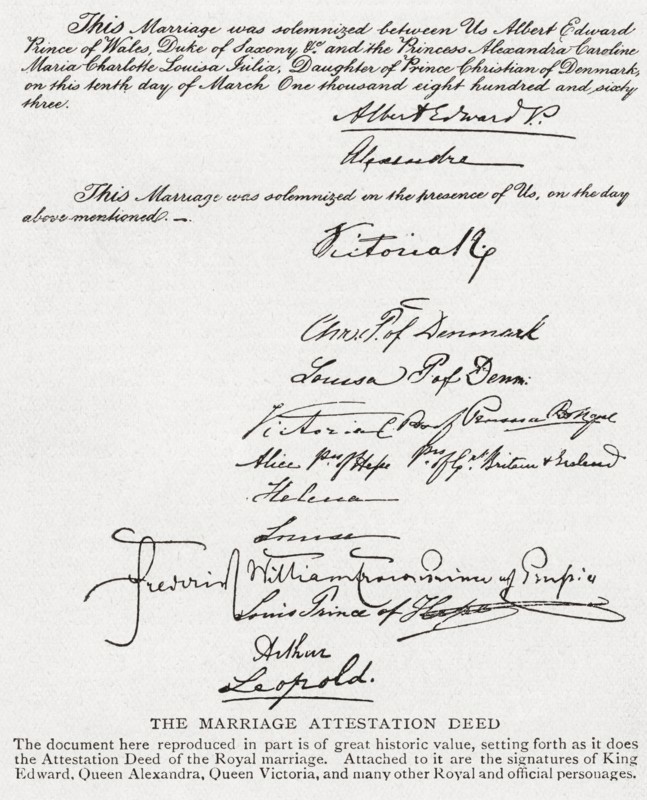 This Marriage was solemnized between Us Albert Edward
Prince of Wales, Duke of Saxony &c. and the Princess Alexandra Caroline
Maria Charlotte Louisa Julia, Daughter of Prince Christian of Denmark,
on this tenth day of March One thousand eight hundred and sixty
three.
Albert Edward P.
Alexandra
This Marriage was solemnized in the presence of Us, on the day
above mentioned.
Victoria R.
Chr. P. of Denmark
Louisa P of Denm:
Victoria C. Prussia
Alice Pss of Hesse Pss of Gt Britain & Ireland
Helena
Louise
Frederick William Crown Prince of Prussia
Louis Prince of Hesse
Arthur
Leopold.
THE MARRIAGE ATTESTATION DEED
The document here reproduced in part is of great historic value, setting forth as it does
the Attestation Deed of the Royal marriage. Attached to it are the signatures of King
Edward, Queen Alexandra, Queen Victoria, and many other Royal and official personages.